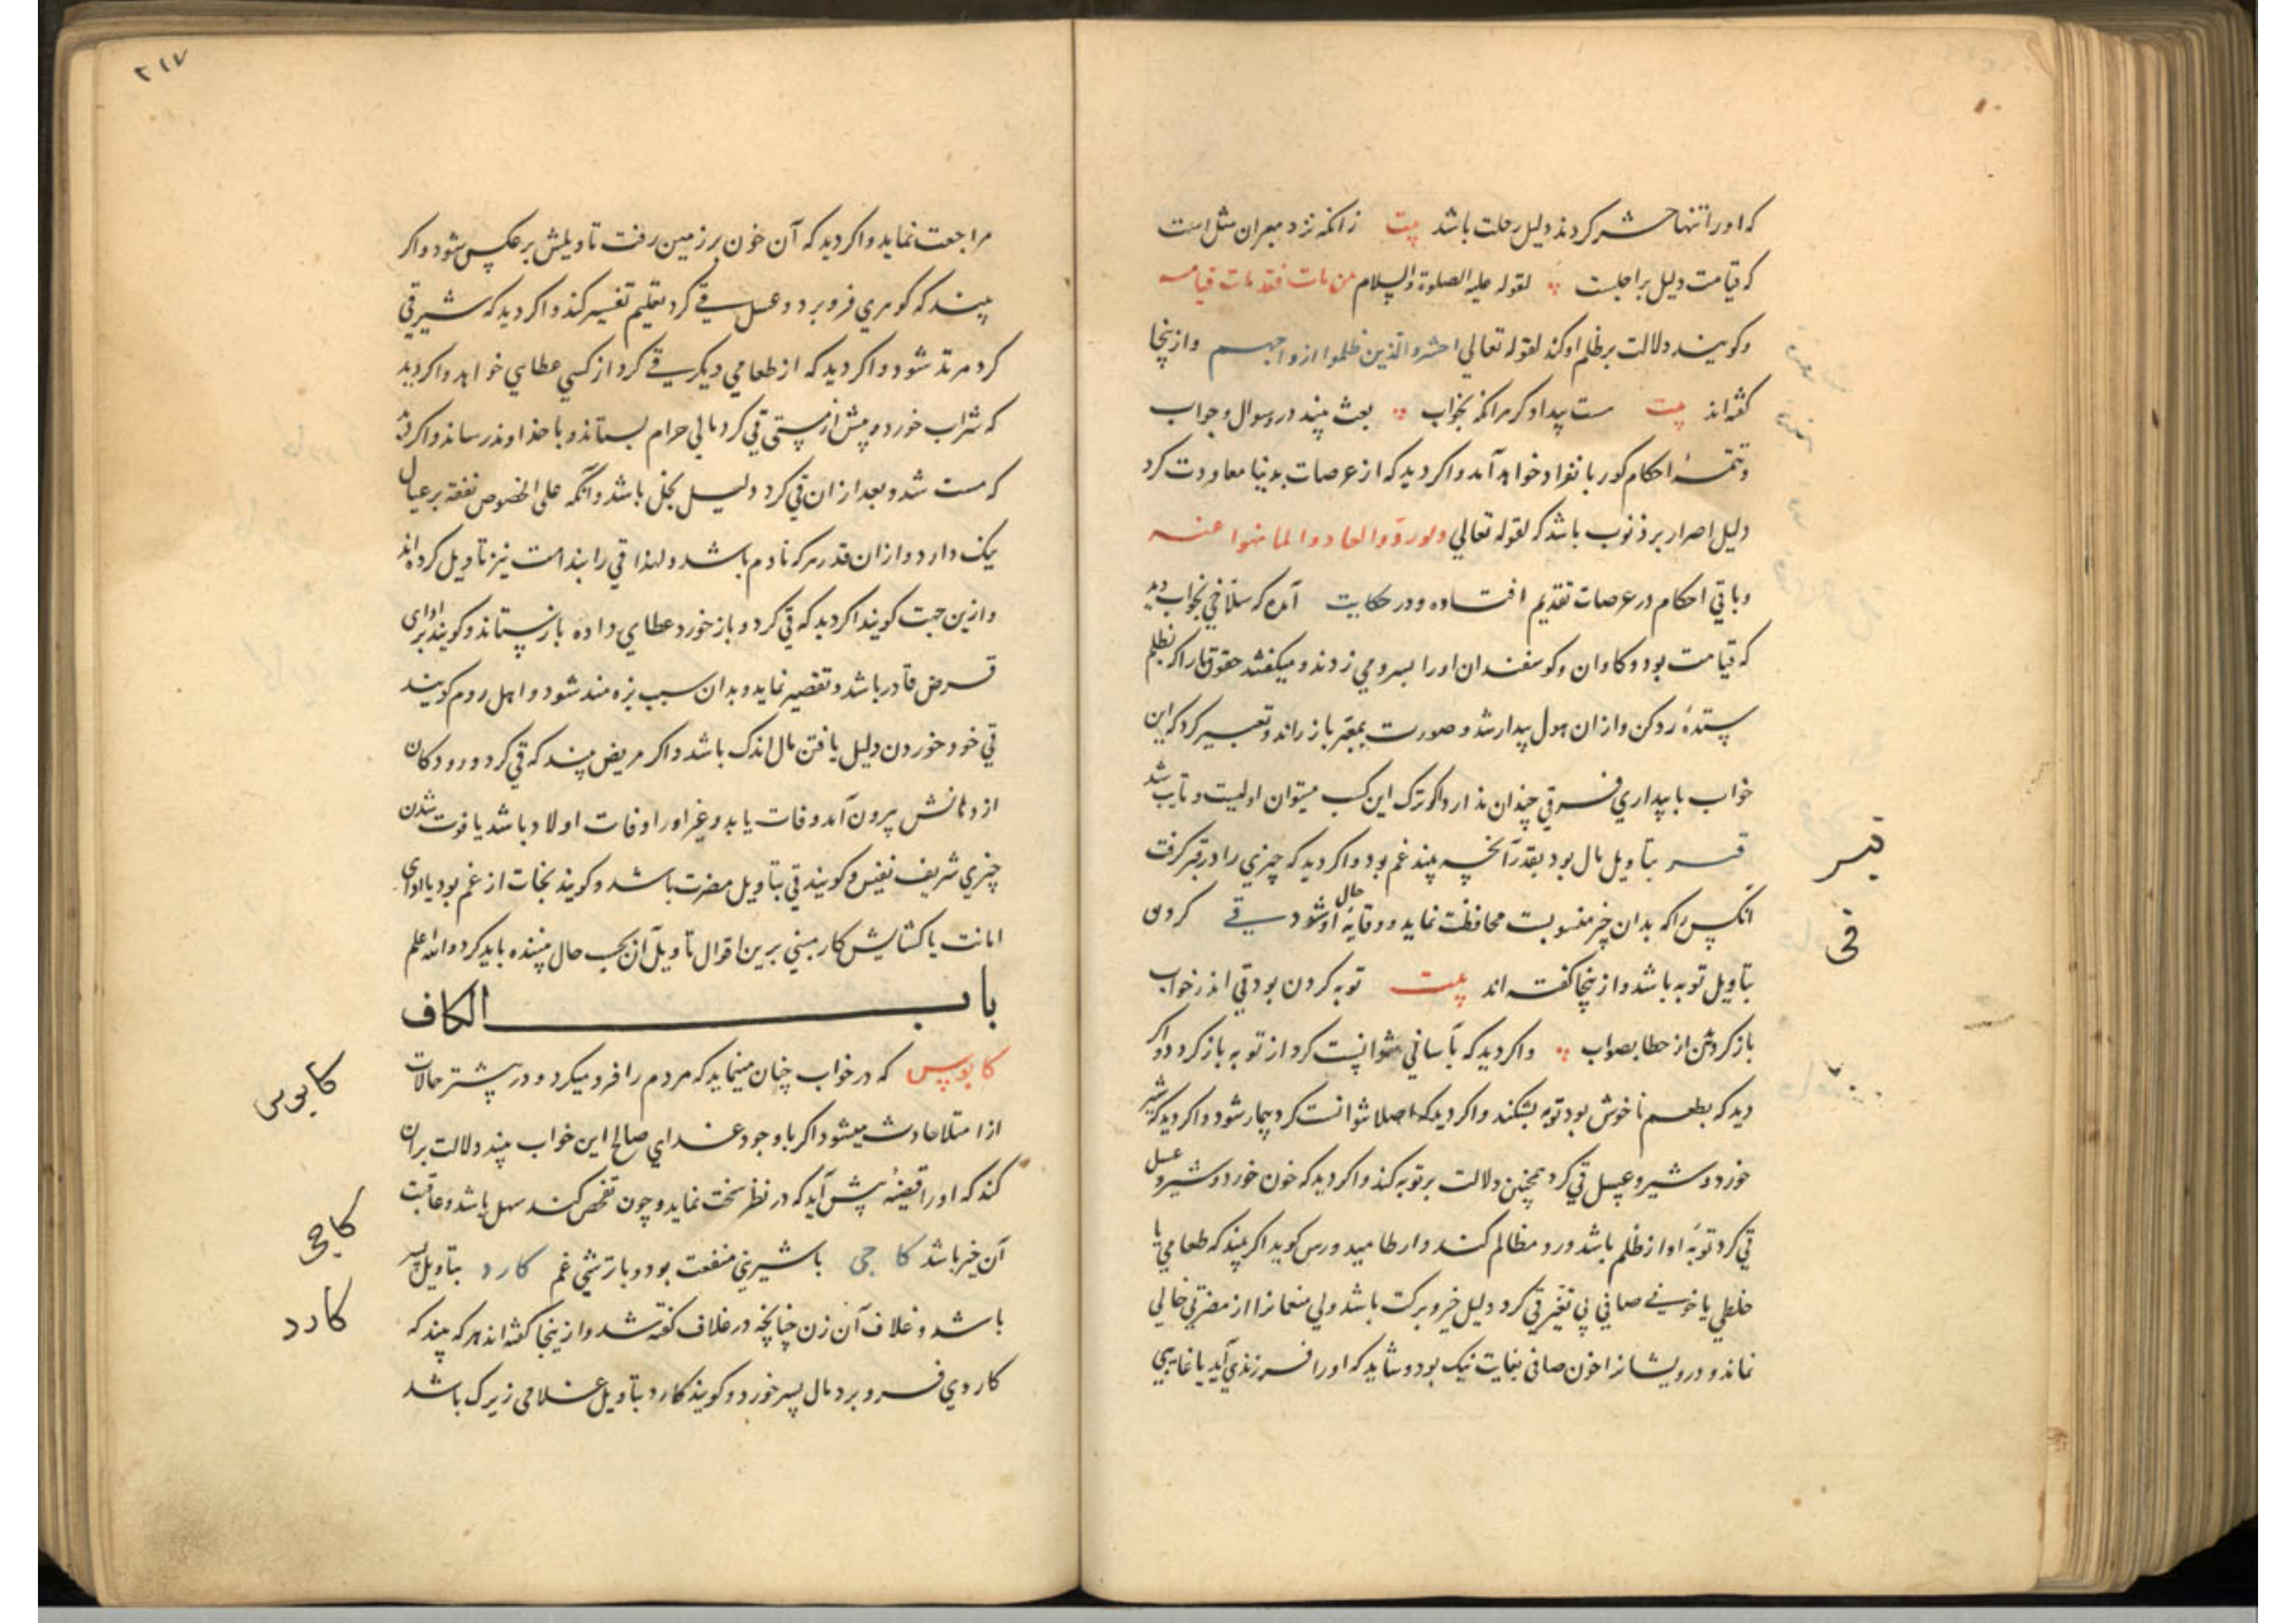 که او را تنها حشر کردند دلیل رحلت باشد بیت زانکه نزد معبران مثل است
که قیامت دلیل بر اجلست لقوله علیه الصلوة والسلام من مات فقد مات قیامه
و کویند دلالت بر ظلم او کند لقوله تعالی احشروا الذین ظلموا ازواجهم و ازینجا
کفته‌اند بیت هست بیدادکر هر انکه بخواب بعث بیند در و سوال و جواب
و تتمهٔ احکام کور بانفراد خواهد آمد و اکر دید که از عرصات بدنیا معاودت کرد
دلیل اصرار بر ذنوب باشد که لقوله تعالی ولو ردوا لعادوا لما نهوا عنه
و باقی احکام در عرصات تقدیم افتاده و در حکایت آمده که سلاخی بخواب دید
که قیامت بود و کاوان و کوسفندان او را بسرو می زدند و میکفتند حقوق ما را که بظلم
ستدهٔ رد کن و از ان هول بیدار شد و صورت بمعبر باز راند و تعبیر کرد که این
خواب با بیداری فرقی چندان ندارد اکر ترک این کسب میتوان اولیست و تایب شد
قیر بتاویل مال بود بقدر آنچه بیند غم بود و اکر دید که چیزی را در قیر کرفت
انکس را که بدان چیز منسوبست محافظت نماید و وقایهٔ حال او شود قی کردن
بتاویل توبه باشد و ازینجا کفته اند بیت توبه کردن بود قی اندر خواب
باز کردش از خطا بصواب و اکر دید که بآسانی نتوانست کرد از توبه باز کردد و اکر
دید که بطعم ناخوش بود توبه بشکند و اکر دید که اصلا نتوانست کرد بیمار شود و اکر دید که شیر
خورد و شیر و عسل قی کرد همچنین دلالت بر توبه کند و اکر دید که خون خورد و شیر و عسل
قی کرد توبهٔ او از ظلم باشد و رد مظالم کند و ارطامیدورس کوید اکر بیند که طعامی یا
خلطی یا خونی صافی بی تغیر قی کرد دلیل خیر و برکت باشد ولی منعمانرا از مضرتی خالی
نماند و درویشانرا خون صافی بغایت نیک بود و شاید که او را فرزندی آید یا غایبی
قیر
قی
۲۱۷
مراجعت نماید و اکر دید که آن خون بر زمین رفت تاویلش بر عکس شود و اکر
بیند که کوهری فرو برد و عسل قی کرد بتعلیم تفسیر کند و اکر دید که شیر قی
کرد مرتد شود و اکر دید که از طعامی دیکر قی کرد از کسی عطای خواهد و اکر دید
که شراب خورد و پیش از مستی قی کرد مالی حرام بستاند و باخداوند رساند و اکر دید
که مست شد و بعد از ان قی کرد دلیل بخل باشد و آنکه علی الخصوص نفقه بر عیال
یک دارد و از ان قدر هر که نادم باشد و لهذا قی را بندامت نیز تاویل کرده‌اند
و ازین جهت کویند اکر دید که قی کرد و باز خورد عطای داده باز ستاند و کویند بر ادای
قرض قادر باشد و تقصیر نماید و بدان سبب بزه مند شود و اهل روم کویند
قی خود خوردن دلیل یافتن مال اندک باشد و اکر مریض بیند که قی کرد و رودکان
از دهانش بیرون آمد وفات یابد و غیر او را وفات اولاد باشد یا فوت شدن
چیزی شریف نفیس و کویند قی بتاویل مضرت باشد و کویند نجات از غم بود یا ادای
امانت یا کشایش کار مبنی برین اقوال تاویل آن بحسب حال بیننده باید کرد والله اعلم
باب الکاف
کابوس که در خواب چنان مینماید که مردم را فرو میکیرد و در بیشتر حالات
از امتلا حادث میشود اکر با وجود غذای صالح این خواب بیند دلالت بران
کند که او را قضیهٔ پیش آید که در نظر سخت نماید و چون تفحص کند سهل باشد و عاقبت
آن خیر باشد کاجی با شیرینی منفعت بود و با ترشی غم کارد بتاویل پسر
باشد و غلاف آن زن چنانچه در غلاف کفته شد و ازینجا کفته اند هر که بیند که
کاردی فرو برد مال پسر خورد و کویند کارد بتاویل غلامی زیرک باشد
کابوس
کاجی
کارد